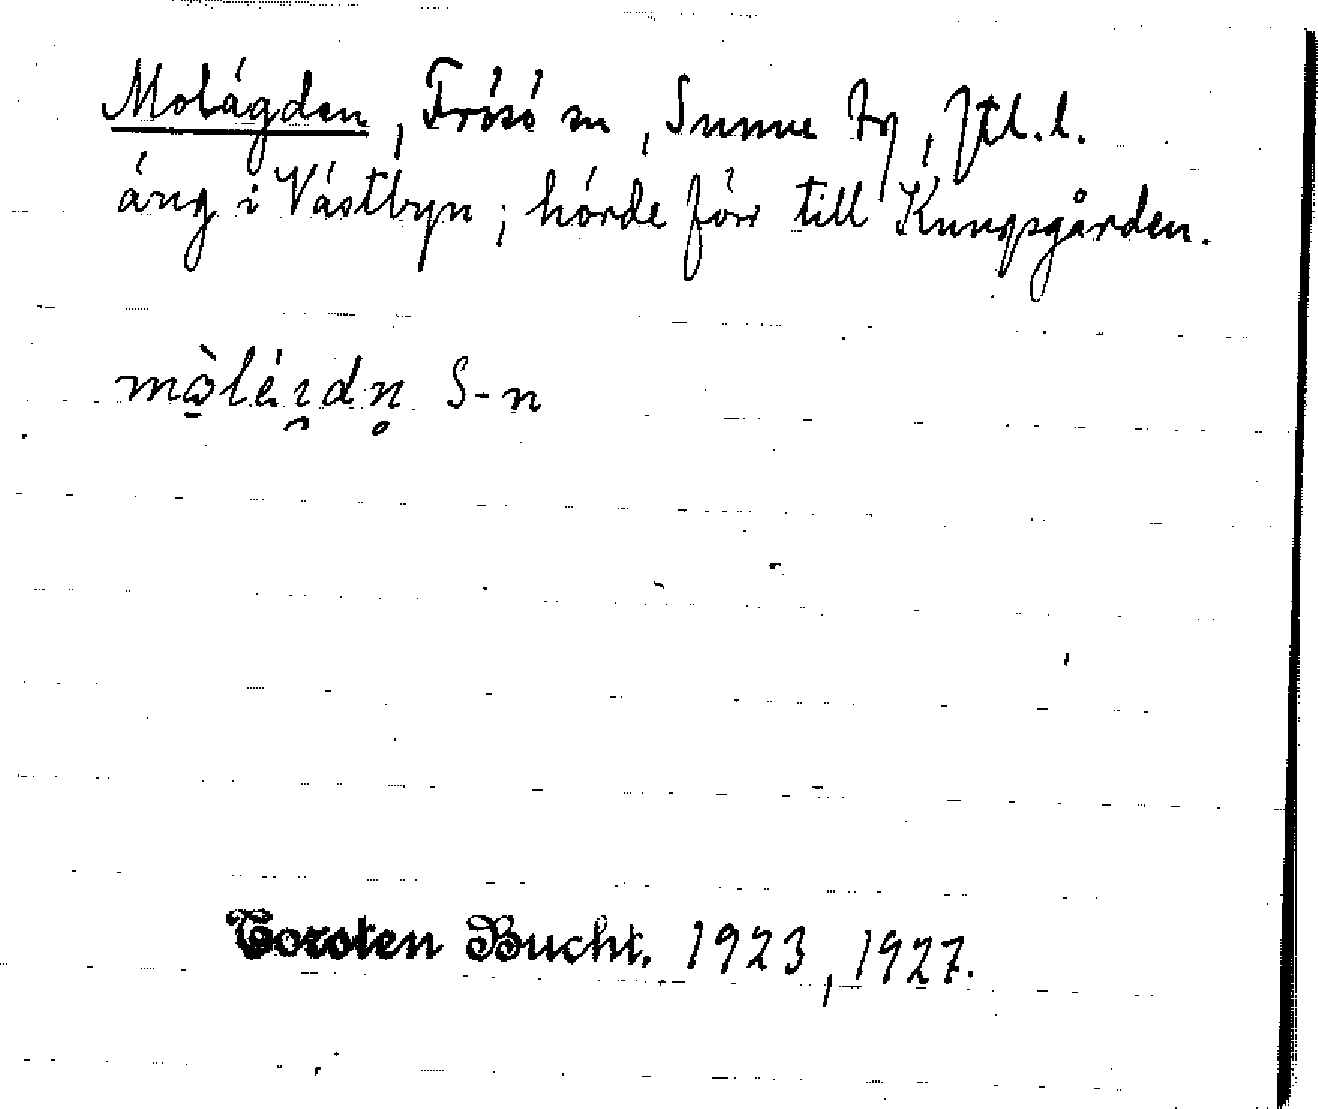 Molägden, Frösö sn, Sunne tg, Jtl.l.
äng i Västbyn; hörde förr till Kungsgården.
mò̱lé̱ɪ̯dn̥ S-n
Torsten Bucht. 1923, 1927.